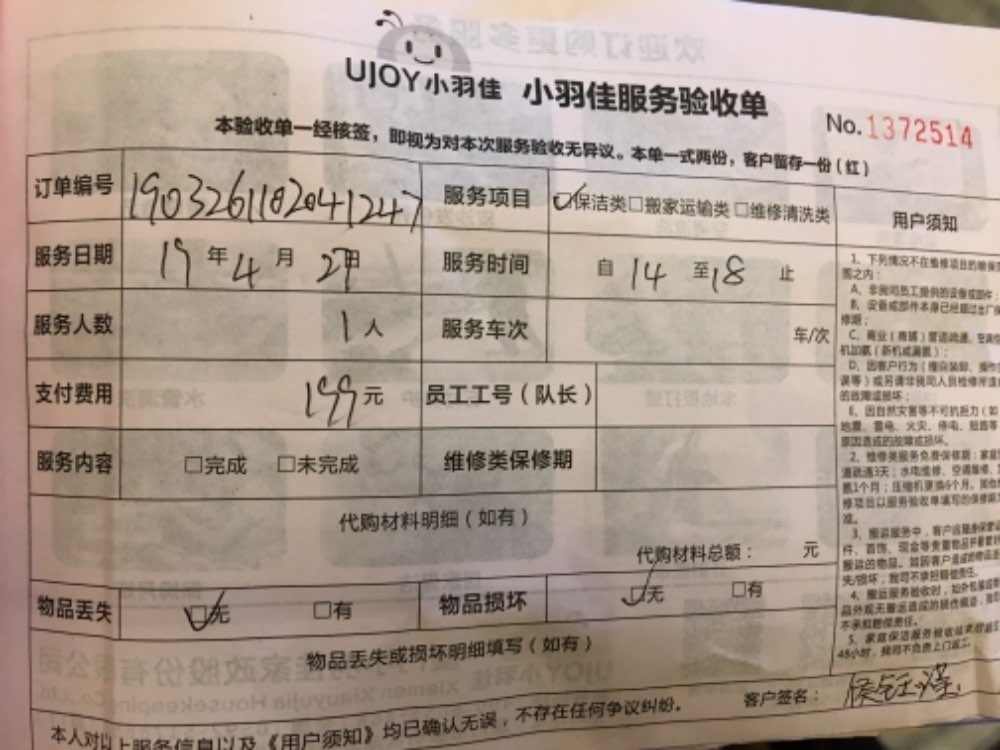 UJOY小羽佳 小羽佳服务验收单
No.1372514
本验收单一经核签，即视为对本次服务验收无异议。本单一式两份，客户留存一份（红）
订单编号 1903261102041247 服务项目 保洁类 □搬家运输类 □维修清洗类
用户须知
服务日期 19年4月2日 服务时间 自14至18止
服务人数 1人 服务车次 车/次
支付费用 199元 员工工号（队长）
服务内容 □完成 □未完成 维修类保修期
代购材料明细（如有）
代购材料总额： 元
物品丢失 无 □有 物品损坏 无 □有
物品丢失或损坏明细填写（如有）
1、下列情况不在维修项目的维保范
围之内：
A、非我司员工提供的设备或部件；
B、设备或部件本身已经超过出厂保
修期；
C、商业（商铺）管道疏通、空调加
机加氟（新机或漏氟）；
D、因客户行为（擅自装卸、操作
误等）或另请非我司人员检修所造
的故障或损坏；
E、因自然灾害等不可抗拒力（如
地震、雷电、火灾、停电、短路等
原因造成的故障或损坏。
2、维修类服务免费保修期：家庭
道疏通3天；水电维修、空调维修、
氟1个月；压缩机更换6个月。其他
修项目以服务验收单填写的保修期
准。
3、搬运服务中，客户应随身保管
件、首饰、现金等贵重物品并看管
搬运的物品。如因客户造成的物品
失/损坏，我司不承担赔偿责任。
4、搬运服务验收时，如外包装
品外观无搬运造成的损伤痕迹，我
不承担赔偿责任。
5、家庭保洁服务验收结束后
48小时，我司不负责上门返工。
客户签名：
本人对以上服务信息以及《用户须知》均已确认无误，不存在任何争议纠纷。